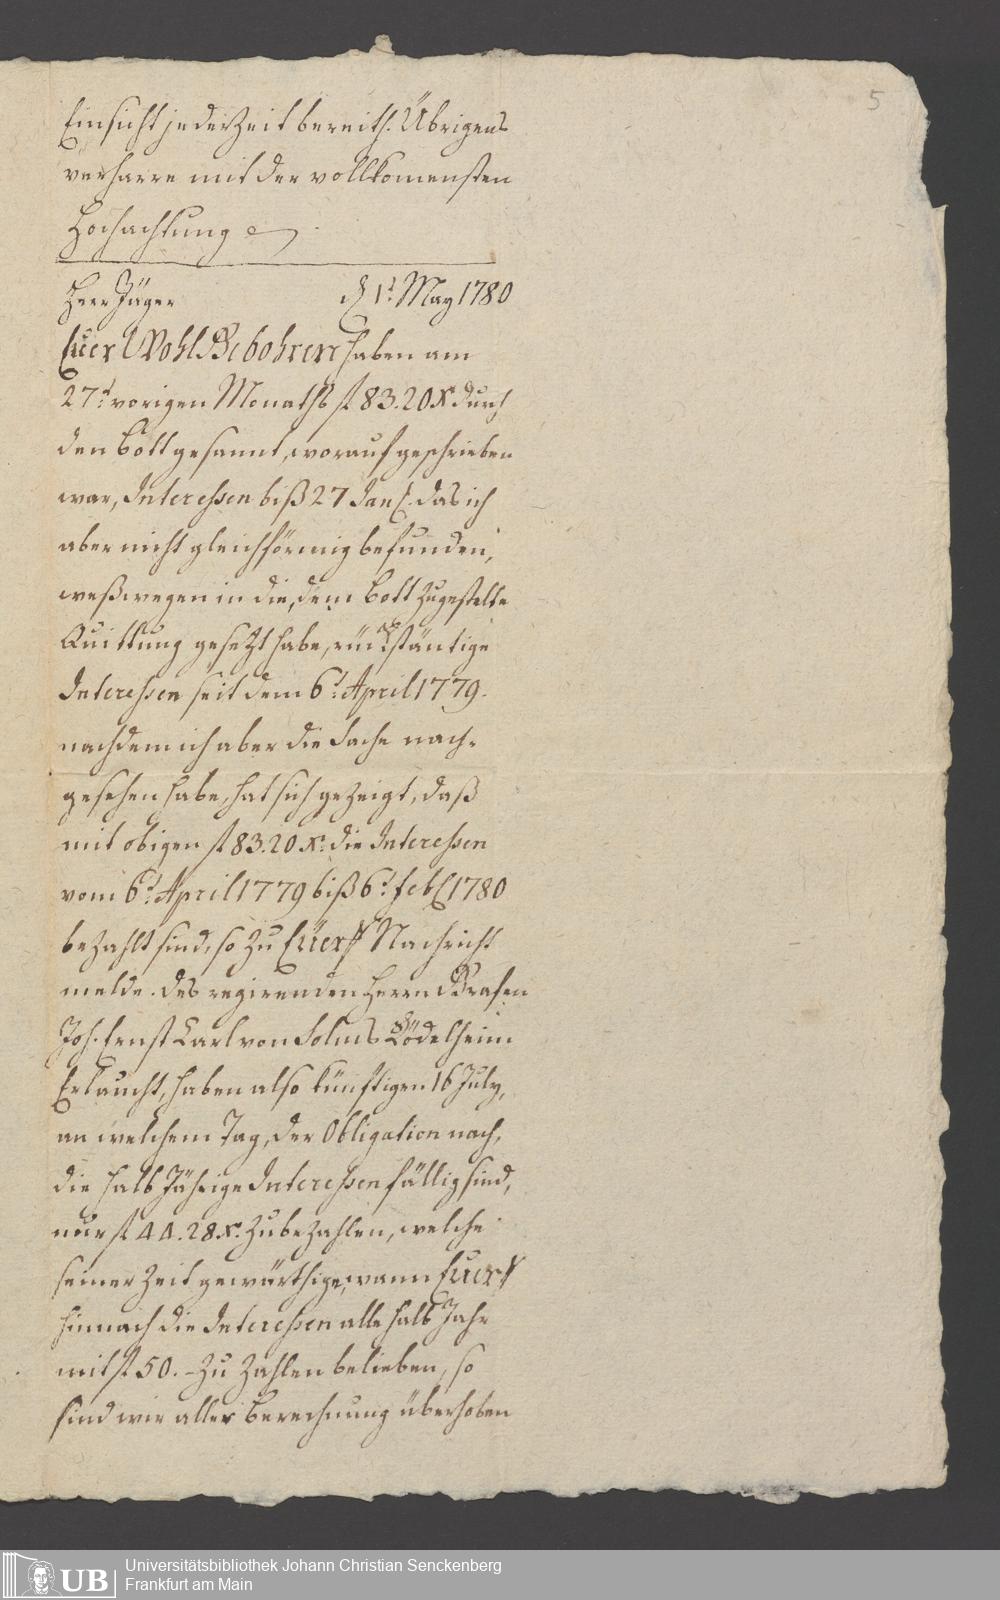 5
Einsicht jederzeit bereith. Übrigens
verharre mit der vollkomensten
Hochachtung
Herr Jäger d 1t. May 1780
Euer WohlGebohren haben am
27t. vorigen Monaths f 83.20 x durch
den bott gesannt, worauf geschrieben
war, Interessen biß 27 Jan. das ich
aber nicht gleichförmig befunden,
weßwegen in die, dem bott zugestelte
Quittung gesetzt habe, rückstäntige
Interessen seit dem 6t. April 1779.
nachdem ich aber die Sache nach-
gesehen habe, hat sich gezeigt, daß
mit obigen f 83.20 x. die Interessen
vom 6t. April 1779 biß 6t. feb 1780
bezahlt sind, so zu Euer Nachricht
melde. des regirenden Herrn Grafen
Joh. Ernst Carl von Solms Rödelheim
Erlaucht, haben also künftigen 16 July,
an welchem Tag, der Obligation nach,
die halb Jährige Interessen fällig sind,
nur f 44.28 x. zu bezahlen, welche
seiner Zeit gewärthige, wann Euer
hinnach die Interessen alle halb Jahr
mit f 50. - zu zahlen belieben, so
sind wir aller berechnung überhoben
UB
Universitätsbibliothek Johann Christian Senckenberg
Frankfurt am Main